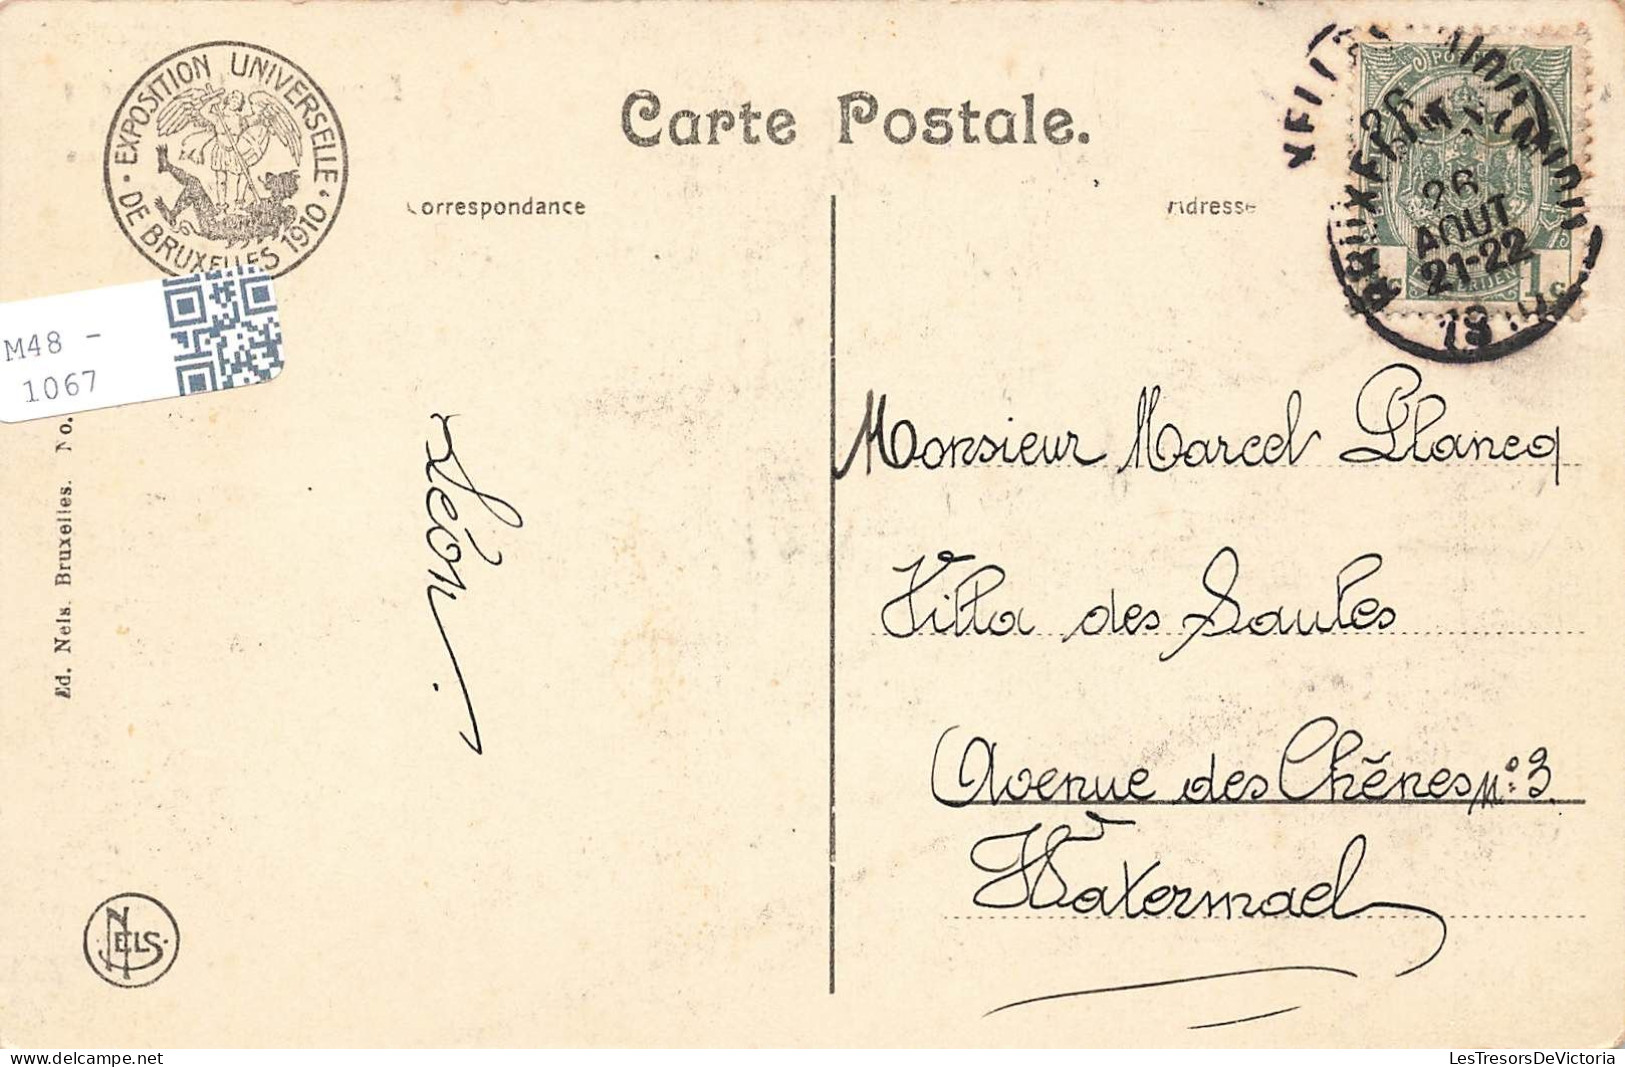 EXPOSITION UNIVERSELLE
DE BRUXELLES 1910
Carte Postale.
Correspondance
Adresse
BRUXELLES
26
AOUT
21-22
1c
M48 -
1067
Ed. Nels. Bruxelles. No.
Léon.
Monsieur Marcel Plancq
Villa des Saules
Avenue des Chênes n° 3.
Watermael
NELS
M48-1067
LesTresorsDeVictoria